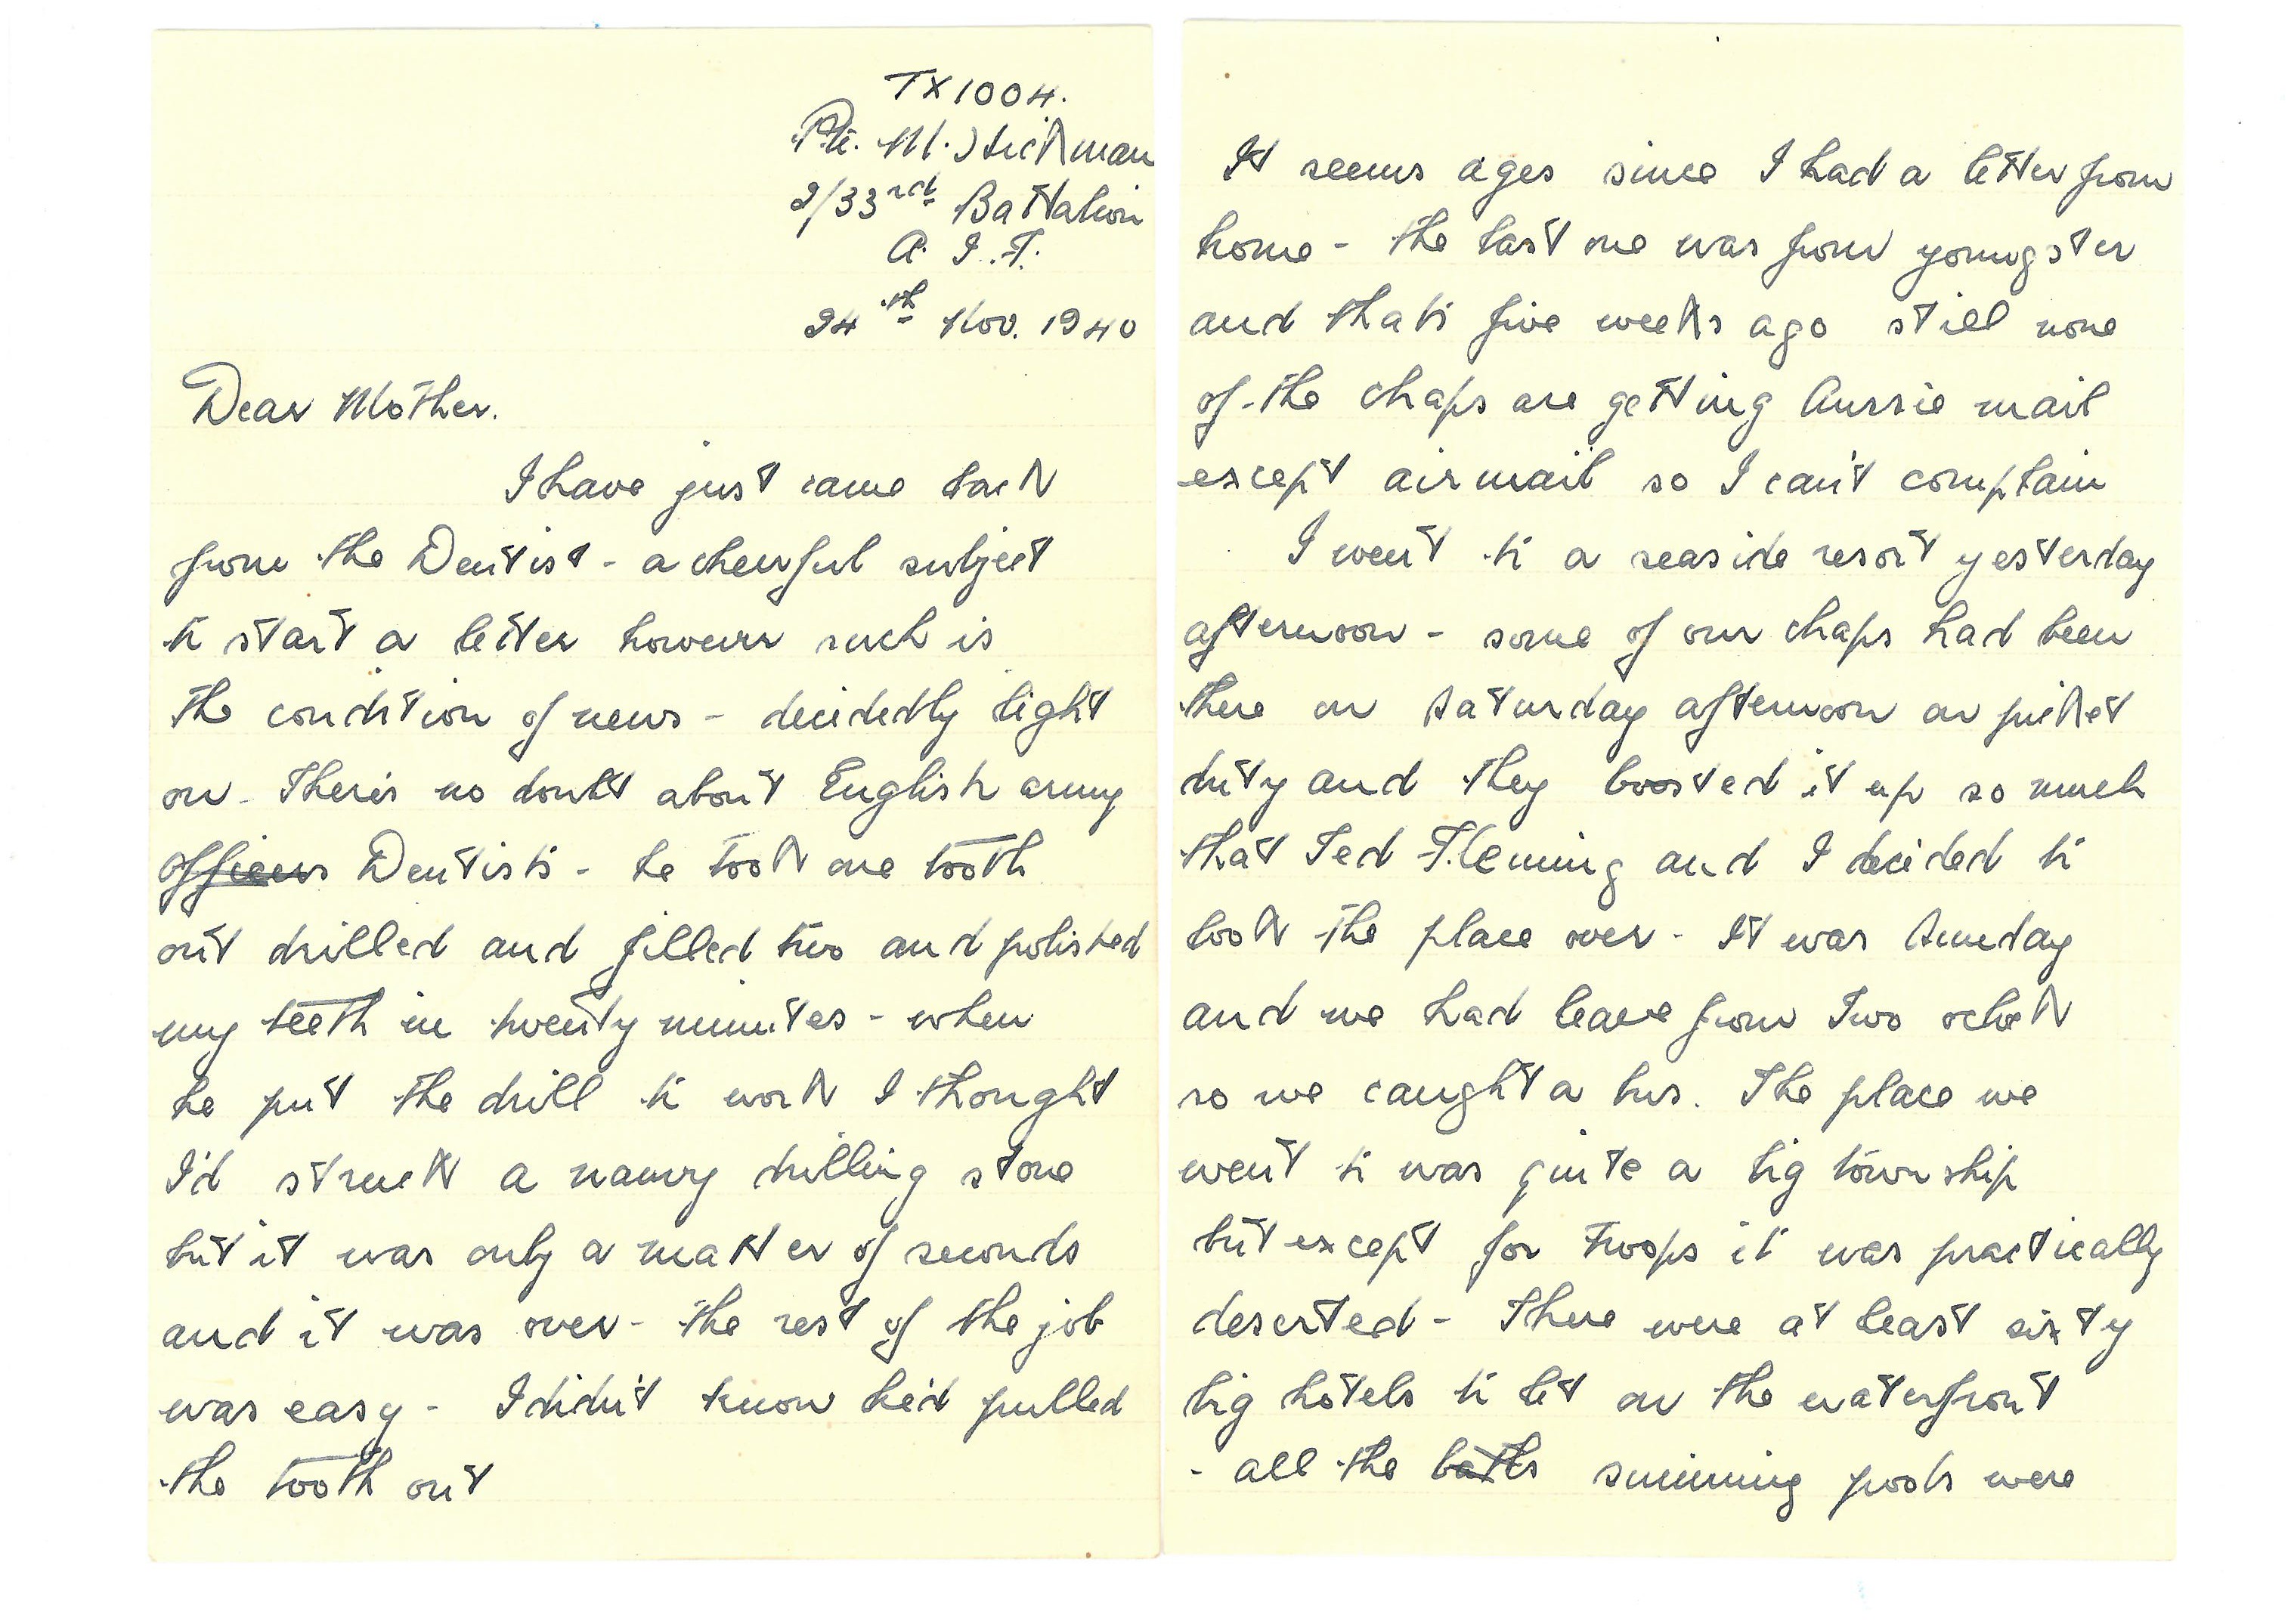 TX1004.
Pte. M. Stickman
2/33rd Battalion
A. I. F.
24th Nov. 1940
Dear Mother.
I have just came back
from the Dentist - a cheerful subject
to start a letter however such is
the condition of news - decidedly light
on - There's no doubt about English army
officers Dentists - he took one tooth
out drilled and filled two and polished
my teeth in twenty minutes - when
he put the drill to work I thought
I'd struck a navvy drilling stone
but it was only a matter of seconds
and it was over - the rest of the job
was easy - I didn't know he'd pulled
the tooth out
It seems ages since I had a letter from
home - the last one was from youngster
and that's five weeks ago still none
of the chaps are getting Aussie mail
except air mail so I can't complain
I went to a seaside resort yesterday
afternoon - some of our chaps had been
there on Saturday afternoon on picket
duty and they boosted it up so much
that Ted Fleming and I decided to
look the place over - It was Sunday
and we had leave from Two oclock
so we caught a bus. The place we
went to was quite a big township
but except for Troops it was practically
deserted - There were at least sixty
big hotels to let on the waterfront
- all the baths swimming pools were